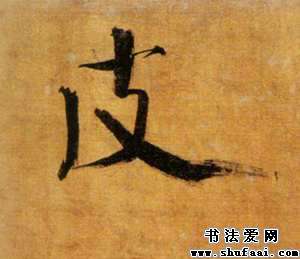 皮
书法爱网
www.shufaai.com